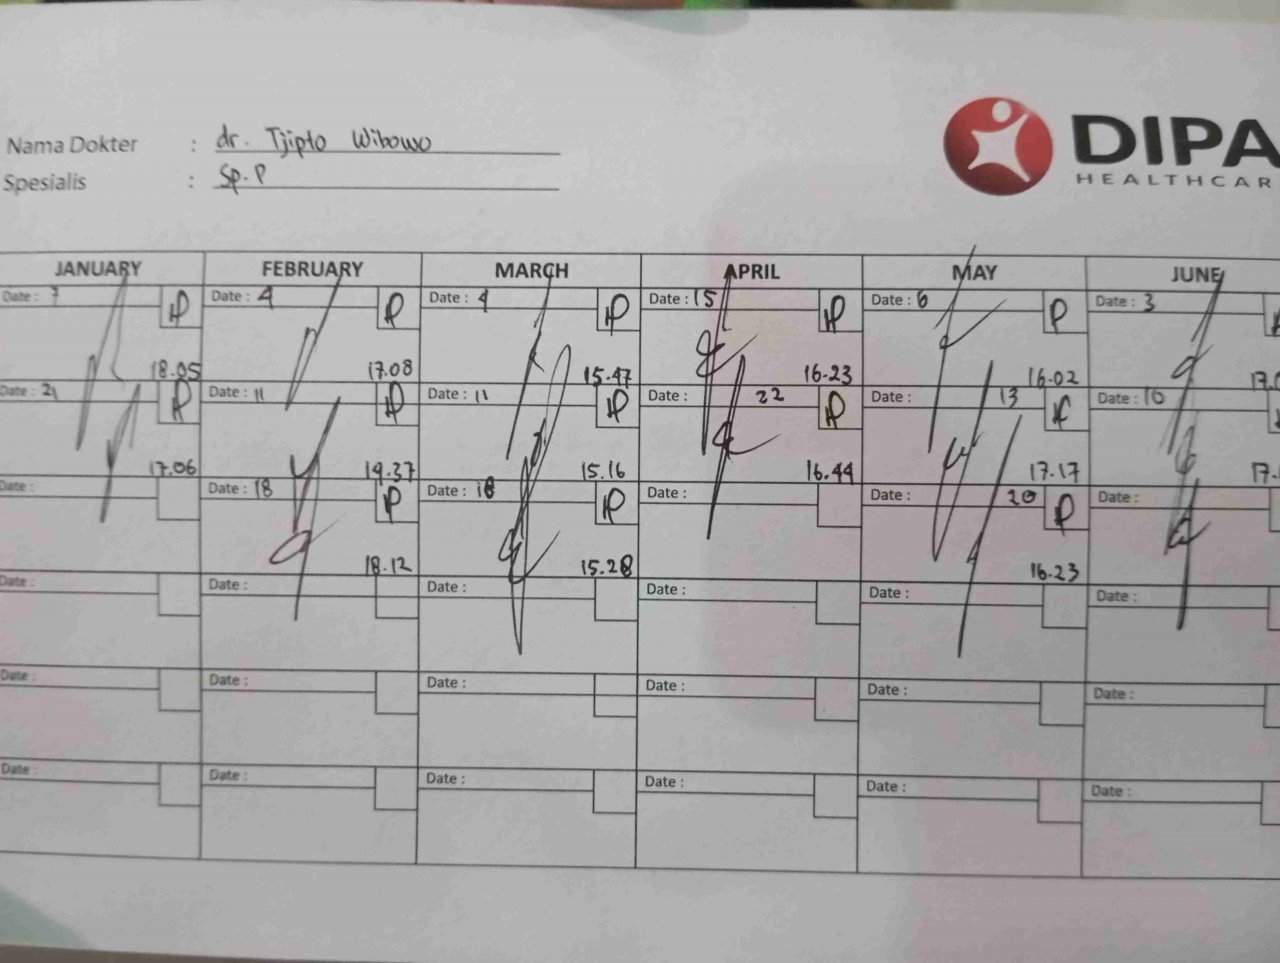 Nama Dokter : dr. Tjipto Wibowo
Spesialis : Sp. P
DIPA
HEALTHCAR
JANUARY FEBRUARY MARCH APRIL MAY JUNE
Date : 7 Date : 4 Date : 4 Date : 15 Date : 6 Date : 3
18.05 17.08 15.47 16.23 16.02
Date : 21 Date : 11 Date : 11 Date : 22 Date : 13 Date : 10
17.06 19.37 15.16 16.44 17.17
Date : Date : 18 Date : 18 Date : Date : 20 Date :
18.12 15.28 16.23
Date : Date : Date : Date : Date : Date :
Date : Date : Date : Date : Date : Date :
Date : Date : Date : Date : Date : Date :